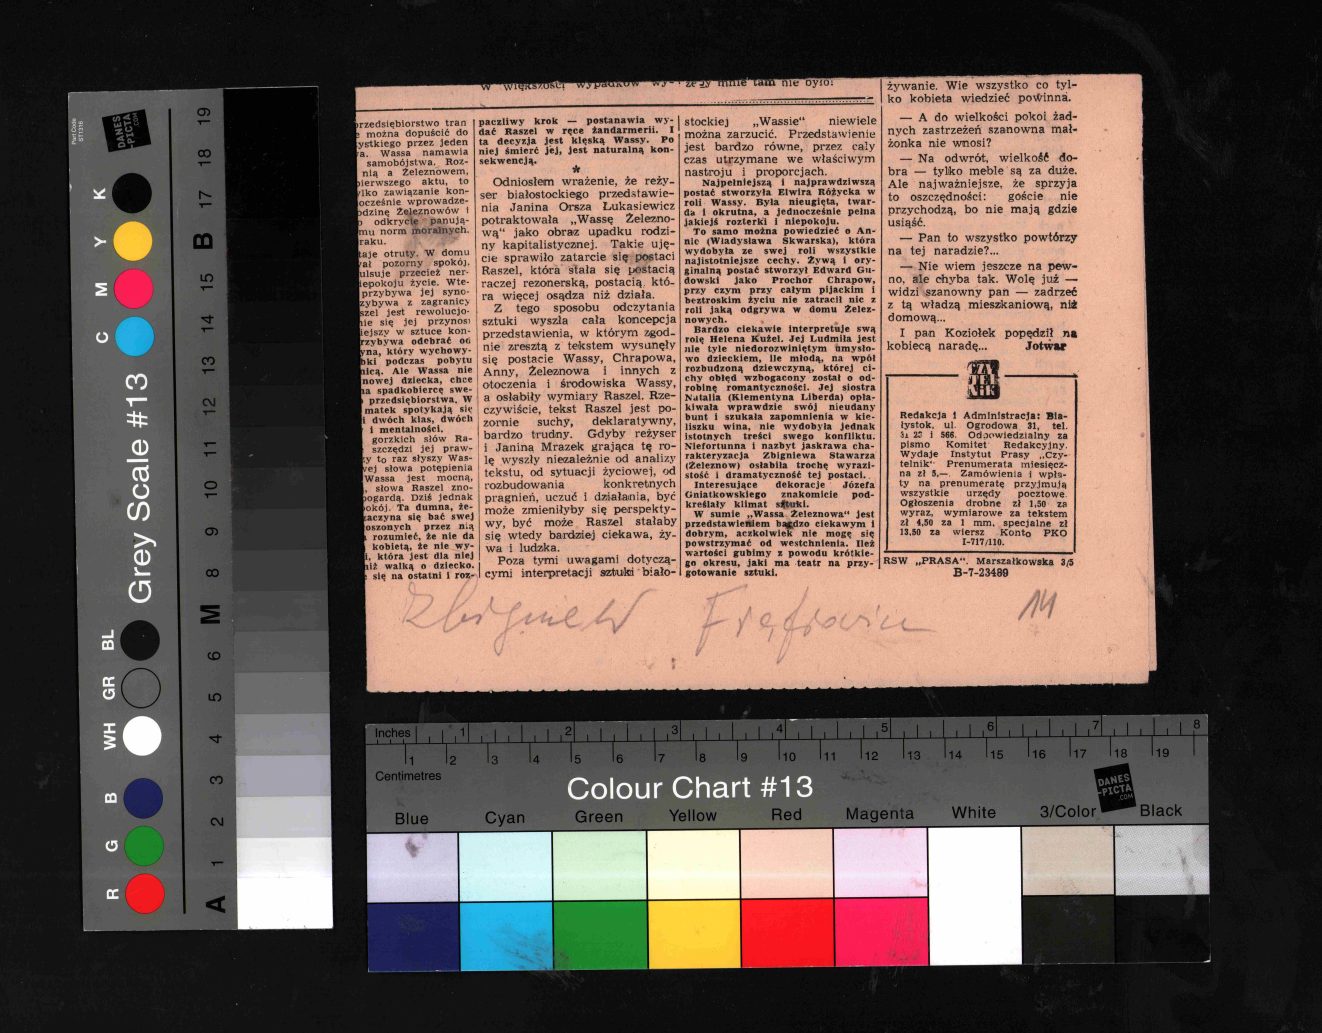 w większości wypadków wy-
że jy mnie tam nie było!
rzedsiębiorstwo tran
można dopuścić do
ystkiego przez jeden
a. Wassa namawia
samobójstwa. Roz-
nią a Żeleznowem,
pierwszego aktu, to
ylko zawiązanie kon-
ocześnie wprowadze-
odzinę Żeleznowów i
odkrycie panują-
mu norm moralnych.
raku.
taje otruty. W domu
ał pozorny spokój.
ulsuje przecież ner-
iepokoju życie. Wte-
przybywa jej syno-
zybywa z zagranicy
szel jest rewolucjo-
ie się jej przynosi
iejszy w sztuce kon-
rzybywa odebrać od
yna, który wychowy-
bki podczas pobytu
nicą. Ale Wassa nie
nowej dziecka, chce
na spadkobiercę swe-
przedsiębiorstwa. W
matek spotykają się
i dwóch klas, dwóch
i mentalności.
gorzkich słów Ra-
szczędzi jej praw-
y to raz słyszy Was-
wej słowa potępienia
Wassa jest mocną,
słowa Raszel zno-
pogardą. Dziś jednak
okój. Ta dumna, że-
zaczyna się bać swej
oszonych przez nią
rozumieć, że nie da
kobietą, że nie wy-
i, która jest dla niej
niż walką o dziecko.
się na ostatni i roz-
paczliwy krok — postanawia wy-
dać Raszel w ręce żandarmerii. I
ta decyzja jest klęską Wassy. Po
niej śmierć jej, jest naturalną kon-
sekwencją.
*
Odniosłem wrażenie, że reży-
ser białostockiego przedstawie-
nia Janina Orsza Łukasiewicz
potraktowała „Wassę Żelezno-
wą" jako obraz upadku rodzi-
ny kapitalistycznej. Takie uję-
cie sprawiło zatarcie się postaci
Raszel, która stała się postacią
raczej rezonerską, postacią, któ-
ra więcej osądza niż działa.
Z tego sposobu odczytania
sztuki wyszła cała koncepcja
przedstawienia, w którym zgod-
nie zresztą z tekstem wysunęły
się postacie Wassy, Chrapowa,
Anny, Żeleznowa i innych z
otoczenia i środowiska Wassy,
a osłabiły wymiary Raszel. Rze-
czywiście, tekst Raszel jest po-
zornie suchy, deklaratywny,
bardzo trudny. Gdyby reżyser
i Janina Mrazek grająca tę ro-
lę wyszły niezależnie od analizy
tekstu, od sytuacji życiowej, od
rozbudowania konkretnych
pragnień, uczuć i działania, być
może zmieniłyby się perspekty-
wy, być może Raszel stałaby
się wtedy bardziej ciekawa, ży-
wa i ludzka.
Poza tymi uwagami dotyczą-
cymi interpretacji sztuki biało-
stockiej „Wassie" niewiele
można zarzucić. Przedstawienie
jest bardzo równe, przez cały
czas utrzymane we właściwym
nastroju i proporcjach.
Najpełniejszą i najprawdziwszą
postać stworzyła Elwira Różycka w
roli Wassy. Była nieugięta, twar-
da i okrutna, a jednocześnie pełna
jakiejś rozterki i niepokoju.
To samo można powiedzieć o An-
nie (Władysława Skwarska), która
wydobyła ze swej roli wszystkie
najistotniejsze cechy. Żywą i ory-
ginalną postać stworzył Edward Gu-
dowski jako Prochor Chrapow,
przy czym przy całym pijackim i
beztroskim życiu nie zatracił nic z
roli jaką odgrywa w domu Żelez-
nowych.
Bardzo ciekawie interpretuje swą
rolę Helena Kużel. Jej Ludmiła jest
nie tyle niedorozwiniętym umysło-
wo dzieckiem, ile młodą, na wpół
rozbudzoną dziewczyną, której ci-
chy obłęd wzbogacony został o od-
robinę romantyczności. Jej siostra
Natalia (Klementyna Liberda) opła-
kiwała wprawdzie swój nieudany
bunt i szukała zapomnienia w kie-
liszku wina, nie wydobyła jednak
istotnych treści swego konfliktu.
Niefortunna i nazbyt jaskrawa cha-
rakteryzacja Zbigniewa Stawarza
(Żeleznow) osłabiła trochę wyrazi-
stość i dramatyczność tej postaci.
Interesujące dekoracje Józefa
Gniatkowskiego znakomicie pod-
kreślały klimat sztuki.
W sumie „Wassa Żeleznowa" jest
przedstawieniem bardzo ciekawym i
dobrym, aczkolwiek nie mogę się
powstrzymać od westchnienia. Ileż
wartości gubimy z powodu krótkie-
go okresu, jaki ma teatr na przy-
gotowanie sztuki.
żywanie. Wie wszystko co tyl-
ko kobieta wiedzieć powinna.
— A do wielkości pokoi żad-
nych zastrzeżeń szanowna mał-
żonka nie wnosi?
— Na odwrót, wielkość do-
bra — tylko meble są za duże.
Ale najważniejsze, że sprzyja
to oszczędności: goście nie
przychodzą, bo nie mają gdzie
usiąść.
— Pan to wszystko powtórzy
na tej naradzie?...
— Nie wiem jeszcze na pew-
no, ale chyba tak. Wolę już —
widzi szanowny pan — zadrzeć
z tą władzą mieszkaniową, niż
domową...
I pan Koziołek popędził na
kobiecą naradę... Jotwar
Redakcja i Administracja: Bia-
łystok, ul. Ogrodowa 31, tel.
51 25 i 566. Odpowiedzialny za
pismo Komitet Redakcyjny.
Wydaje Instytut Prasy „Czy-
telnik" Prenumerata miesięcz-
na zł 5,—. Zamówienia i wpła-
ty na prenumeratę przyjmują
wszystkie urzędy pocztowe.
Ogłoszenia drobne zł 1,50 za
wyraz, wymiarowe za tekstem
zł 4,50 za 1 mm, specjalne zł
13,50 za wiersz Konto PKO
I-717/110.
RSW „PRASA". Marszałkowska 3/5
B-7-23489
Zbigniew
14
Grey Scale #13
DANES
-PICTA
.COM
K Y M C BL GR WH B G R
A 1 2 3 4 5 6 M 8 9 10 11 12 13 14 15 B 17 18 19
Inches 1 2 3 4 5 6 7 8
1 2 3 4 5 6 7 8 9 10 11 12 13 14 15 16 17 18 19
Centimetres
Colour Chart #13
DANES
-PICTA
.COM
Blue Cyan Green Yellow Red Magenta White 3/Color Black